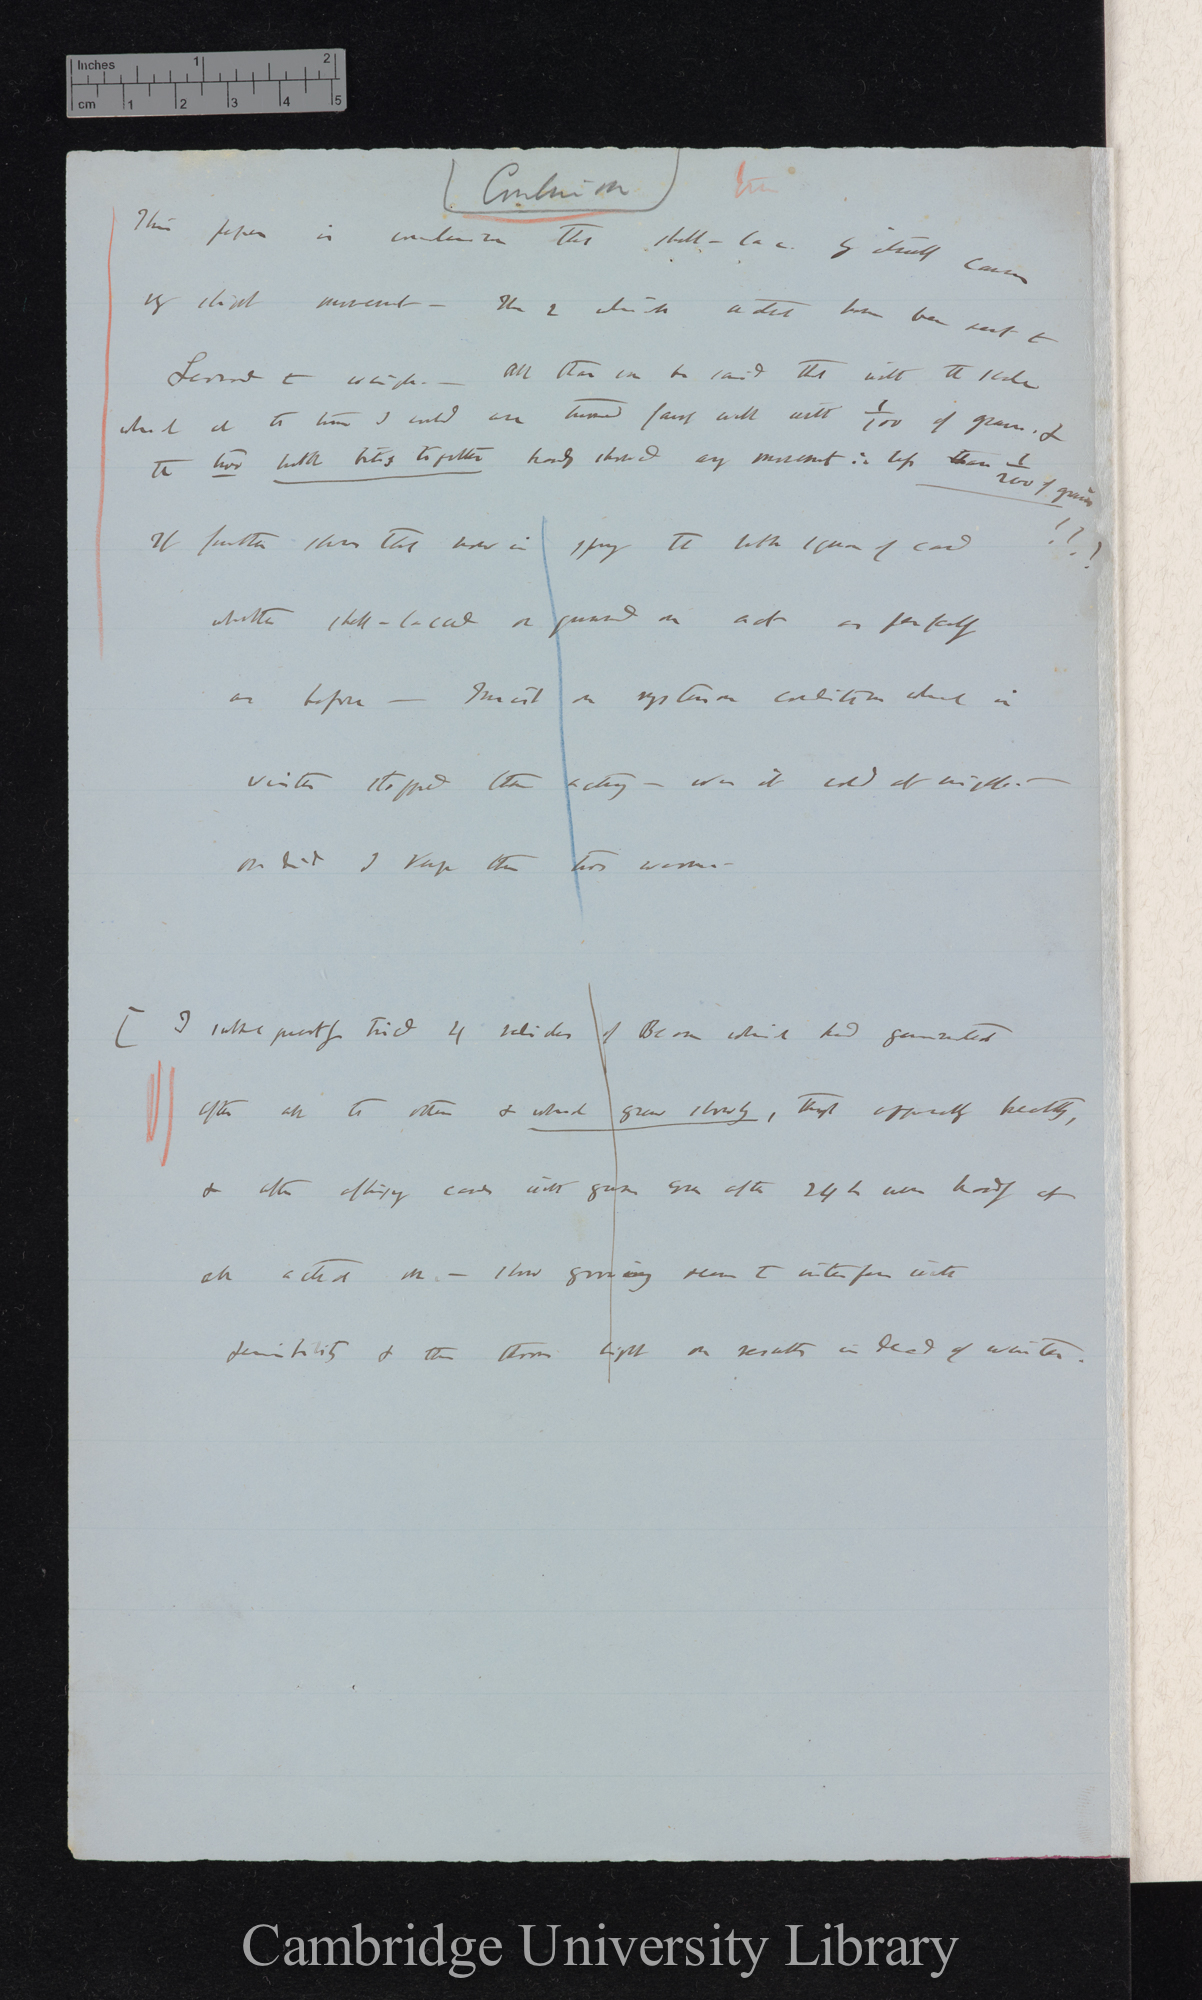 Inches 1 2
cm 1 2 3 4 5
Conclusion
This paper is conclusion that shell-lac by itself causes
very slight movement — The 2 which acted have been sent to
to weigh. — All that can be said that with the scales
which at the time I used are turned fairly well with 1/100 of grain, &
the two little bits together hardly showed any movement ie less than 1/200 of grain
!?!
It further shows that now in spring the little squares of card
whether shell-laced or gummed on act as perfectly
as before — Insist on mysterious condition which in
winter stopped them acting — was it cold at night. —
or did I keep them too warm —
[ I subsequently tried 4 radicles of Bean which had germinated
after all the others & which grew slowly, though apparently healthy,
& after affixing cards with gum even after 24 h were hardly at
all acted on. — slow growing seems to interfere with
sensibility & this throws light on results in dead of winter.
Cambridge University Library